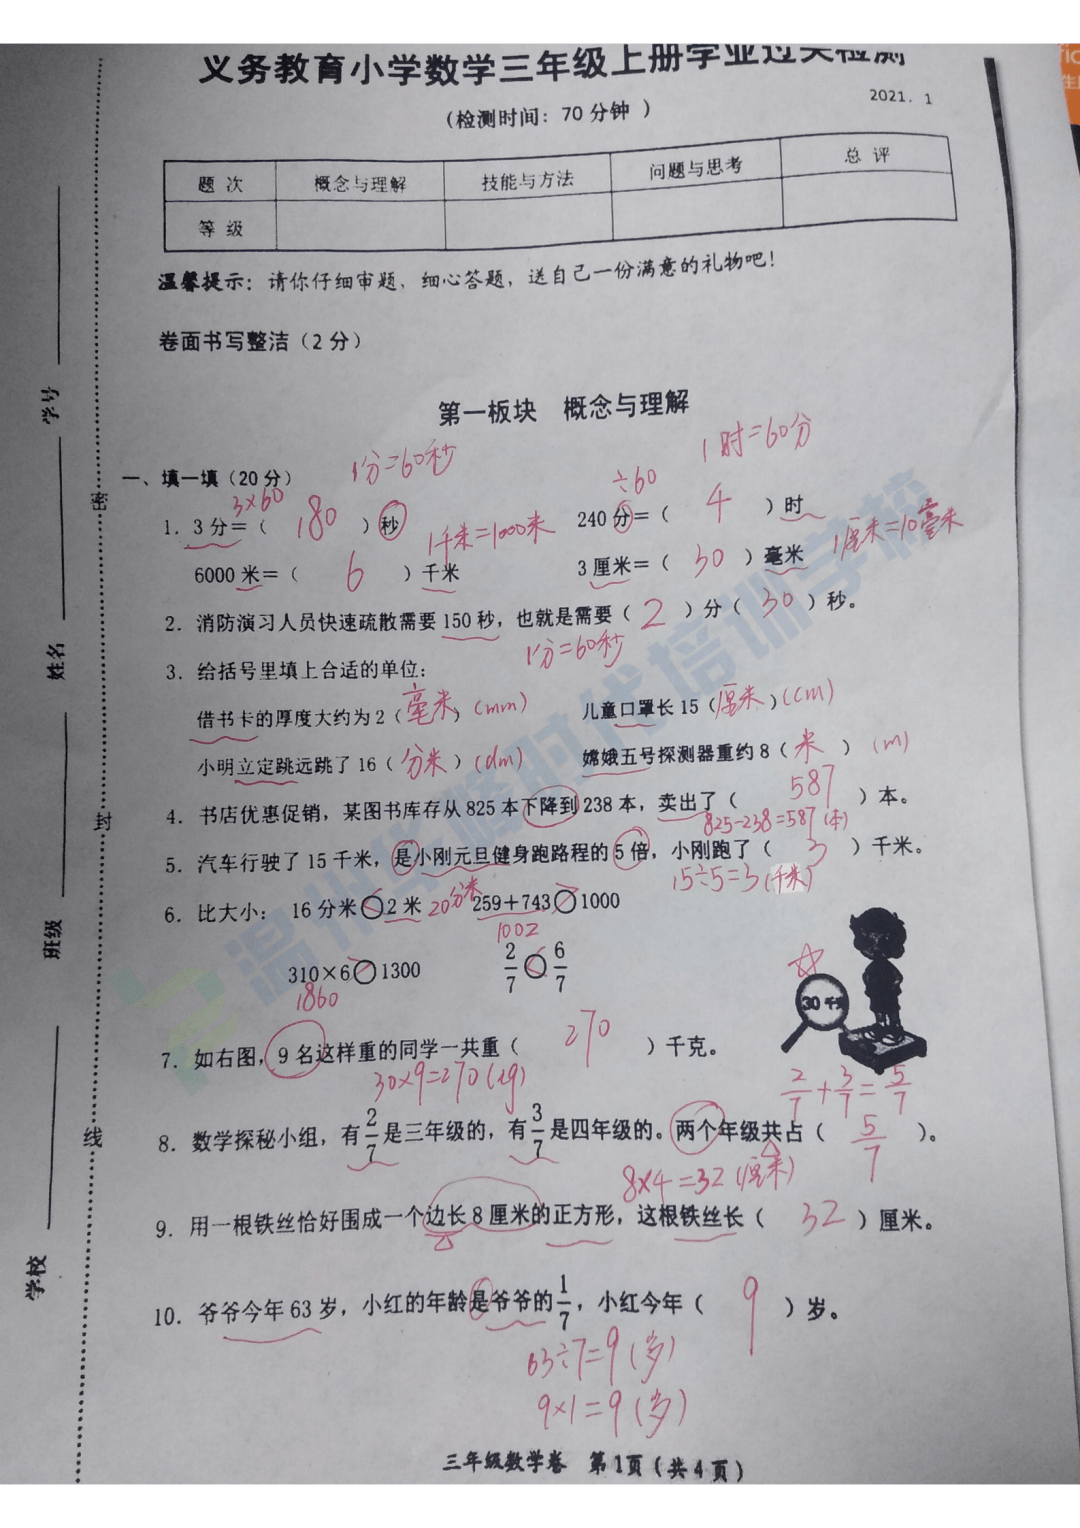 义务教育小学数学三年级上册学业过关检测
2021.1
(检测时间：70分钟 )
题 次 概念与理解 技能与方法 问题与思考 总 评
等 级
温馨提示：请你仔细审题、细心答题，送自己一份满意的礼物吧！
卷面书写整洁（2分）
第一板块 概念与理解
1分=60秒 1时=60分
一、填一填（20分）
3×60 ÷60
1. 3分=（ 180 ）秒 240分=（ 4 ）时
1千米=1000米 1厘米=10毫米
6000米=（ 6 ）千米 3厘米=（ 30 ）毫米
2. 消防演习人员快速疏散需要150秒，也就是需要（ 2 ）分（ 30 ）秒。
1分=60秒
3. 给括号里填上合适的单位：
借书卡的厚度大约为2（毫米）(mm) 儿童口罩长15（厘米）(cm)
小明立定跳远跳了16（分米）(dm) 嫦娥五号探测器重约8（米）(m)
4. 书店优惠促销，某图书库存从825本下降到238本，卖出了（ 587 ）本。
825-238=587(本)
5. 汽车行驶了15千米，是小刚元旦健身跑路程的5倍，小刚跑了（ 3 ）千米。
15÷5=3(千米)
6. 比大小： 16分米<2米 20分米 259+743>1000
1002
310×6>1300 2/7<6/7
1860
30千
7. 如右图，9名这样重的同学一共重（ 270 ）千克。
30×9=270(kg)
2/7+3/7=5/7
8. 数学探秘小组，有2/7是三年级的，有3/7是四年级的。两个年级共占（ 5/7 ）。
8×4=32(厘米)
9. 用一根铁丝恰好围成一个边长8厘米的正方形，这根铁丝长（ 32 ）厘米。
10. 爷爷今年63岁，小红的年龄是爷爷的1/7，小红今年（ 9 ）岁。
63÷7=9(岁)
9×1=9(岁)
三年级数学卷 第1页(共4页)
学号
姓名
班级
学校
密
封
线
温州华修时代培训学校